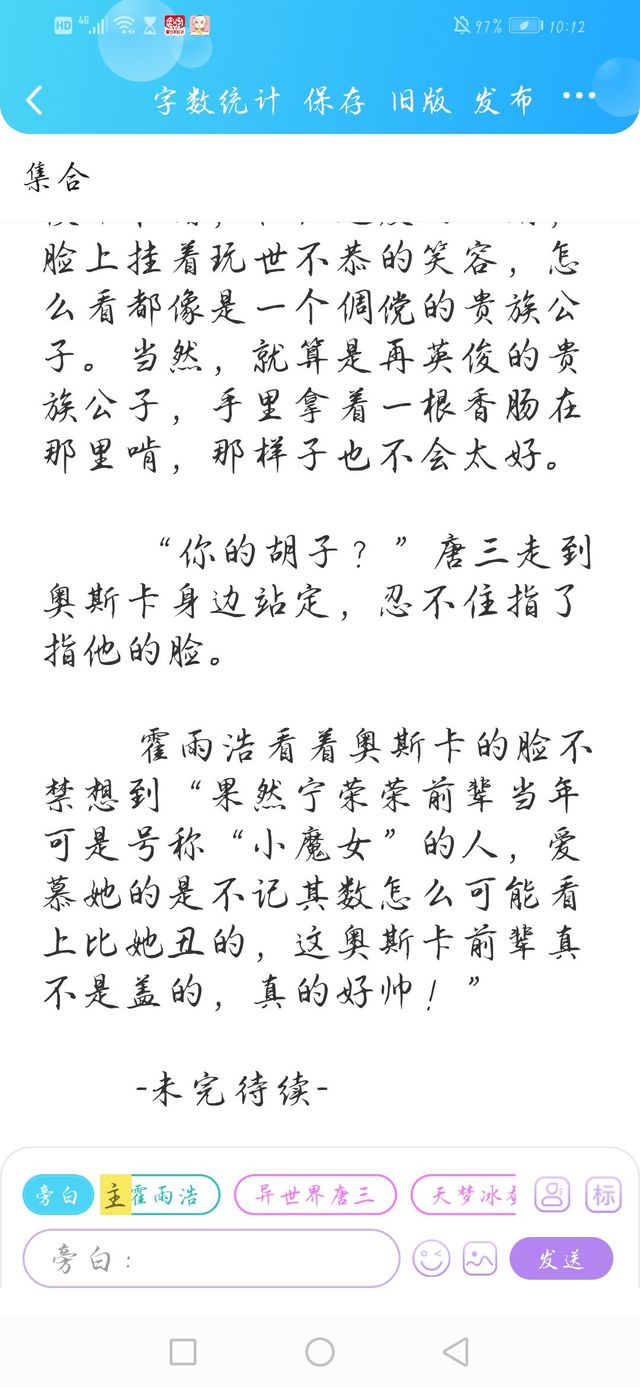 HD 4G 97% 10:12
字数统计 保存 旧版 发布 ···
集合
脸上挂着玩世不恭的笑容，怎
么看都像是一个倜傥的贵族公
子。当然，就算是再英俊的贵
族公子，手里拿着一根香肠在
那里啃，那样子也不会太好。
“你的胡子？”唐三走到
奥斯卡身边站定，忍不住指了
指他的脸。
霍雨浩看着奥斯卡的脸不
禁想到“果然宁荣荣前辈当年
可是号称“小魔女”的人，爱
慕她的是不记其数怎么可能看
上比她丑的，这奥斯卡前辈真
不是盖的，真的好帅！”
-未完待续-
旁白 主 霍雨浩 异世界唐三 天梦冰 标
旁白： 发送